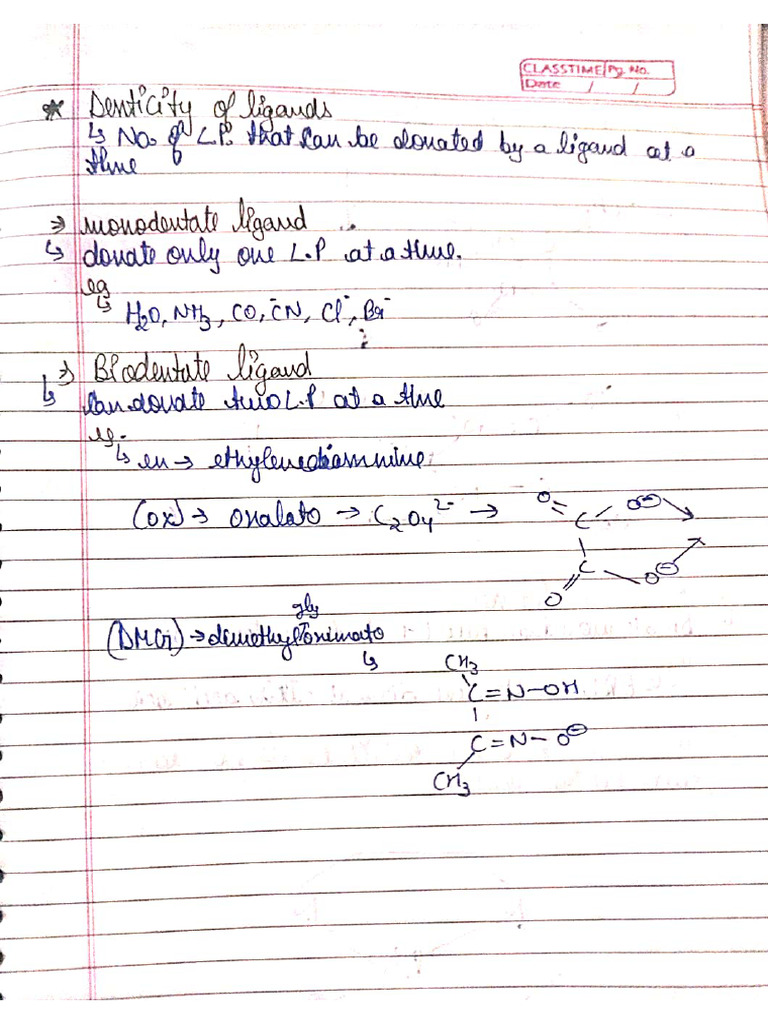 CLASSTIME Pg. No.
Date / /
* Denticity of ligands
↳ No. of L.P. that can be donated by a ligand at a
time
⇒ monodentate ligand
↳ donate only one L.P at a time.
eg
↳ H₂O, NH₃, CO, ⁻CN, Cl⁻, Br⁻
⇒ Bidentate ligand
↳ can donate two L.P at a time
eg.
↳ en → ethylenediammine
(ox) → oxalato → C₂O₄²⁻ →
O = C / O⊖
C
O // O⊖
gly
(DMG) → dimethyloximato
↳
CH₃
C=N–OH
C=N–O⊖
CH₃